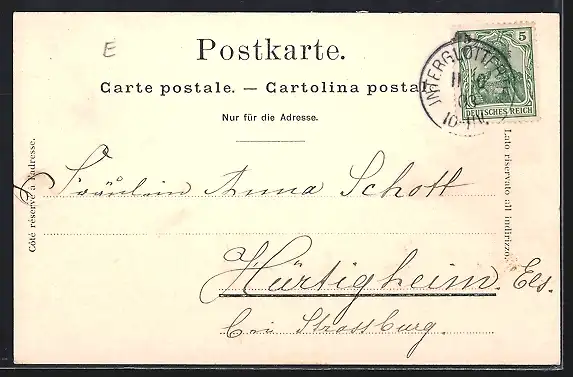 E
Postkarte.
Carte postale. — Cartolina posta
Nur für die Adresse.
5
DEUTSCHES REICH
Côté réservé à l'adresse.
Lato riservato all indirizzo.
Fräulein Anna Schott
Hürtigheim. Els.
bei Strassburg.